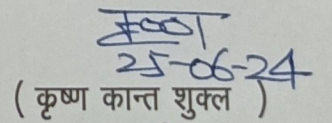 25-06-24
( कृष्ण कान्त शुक्ल )